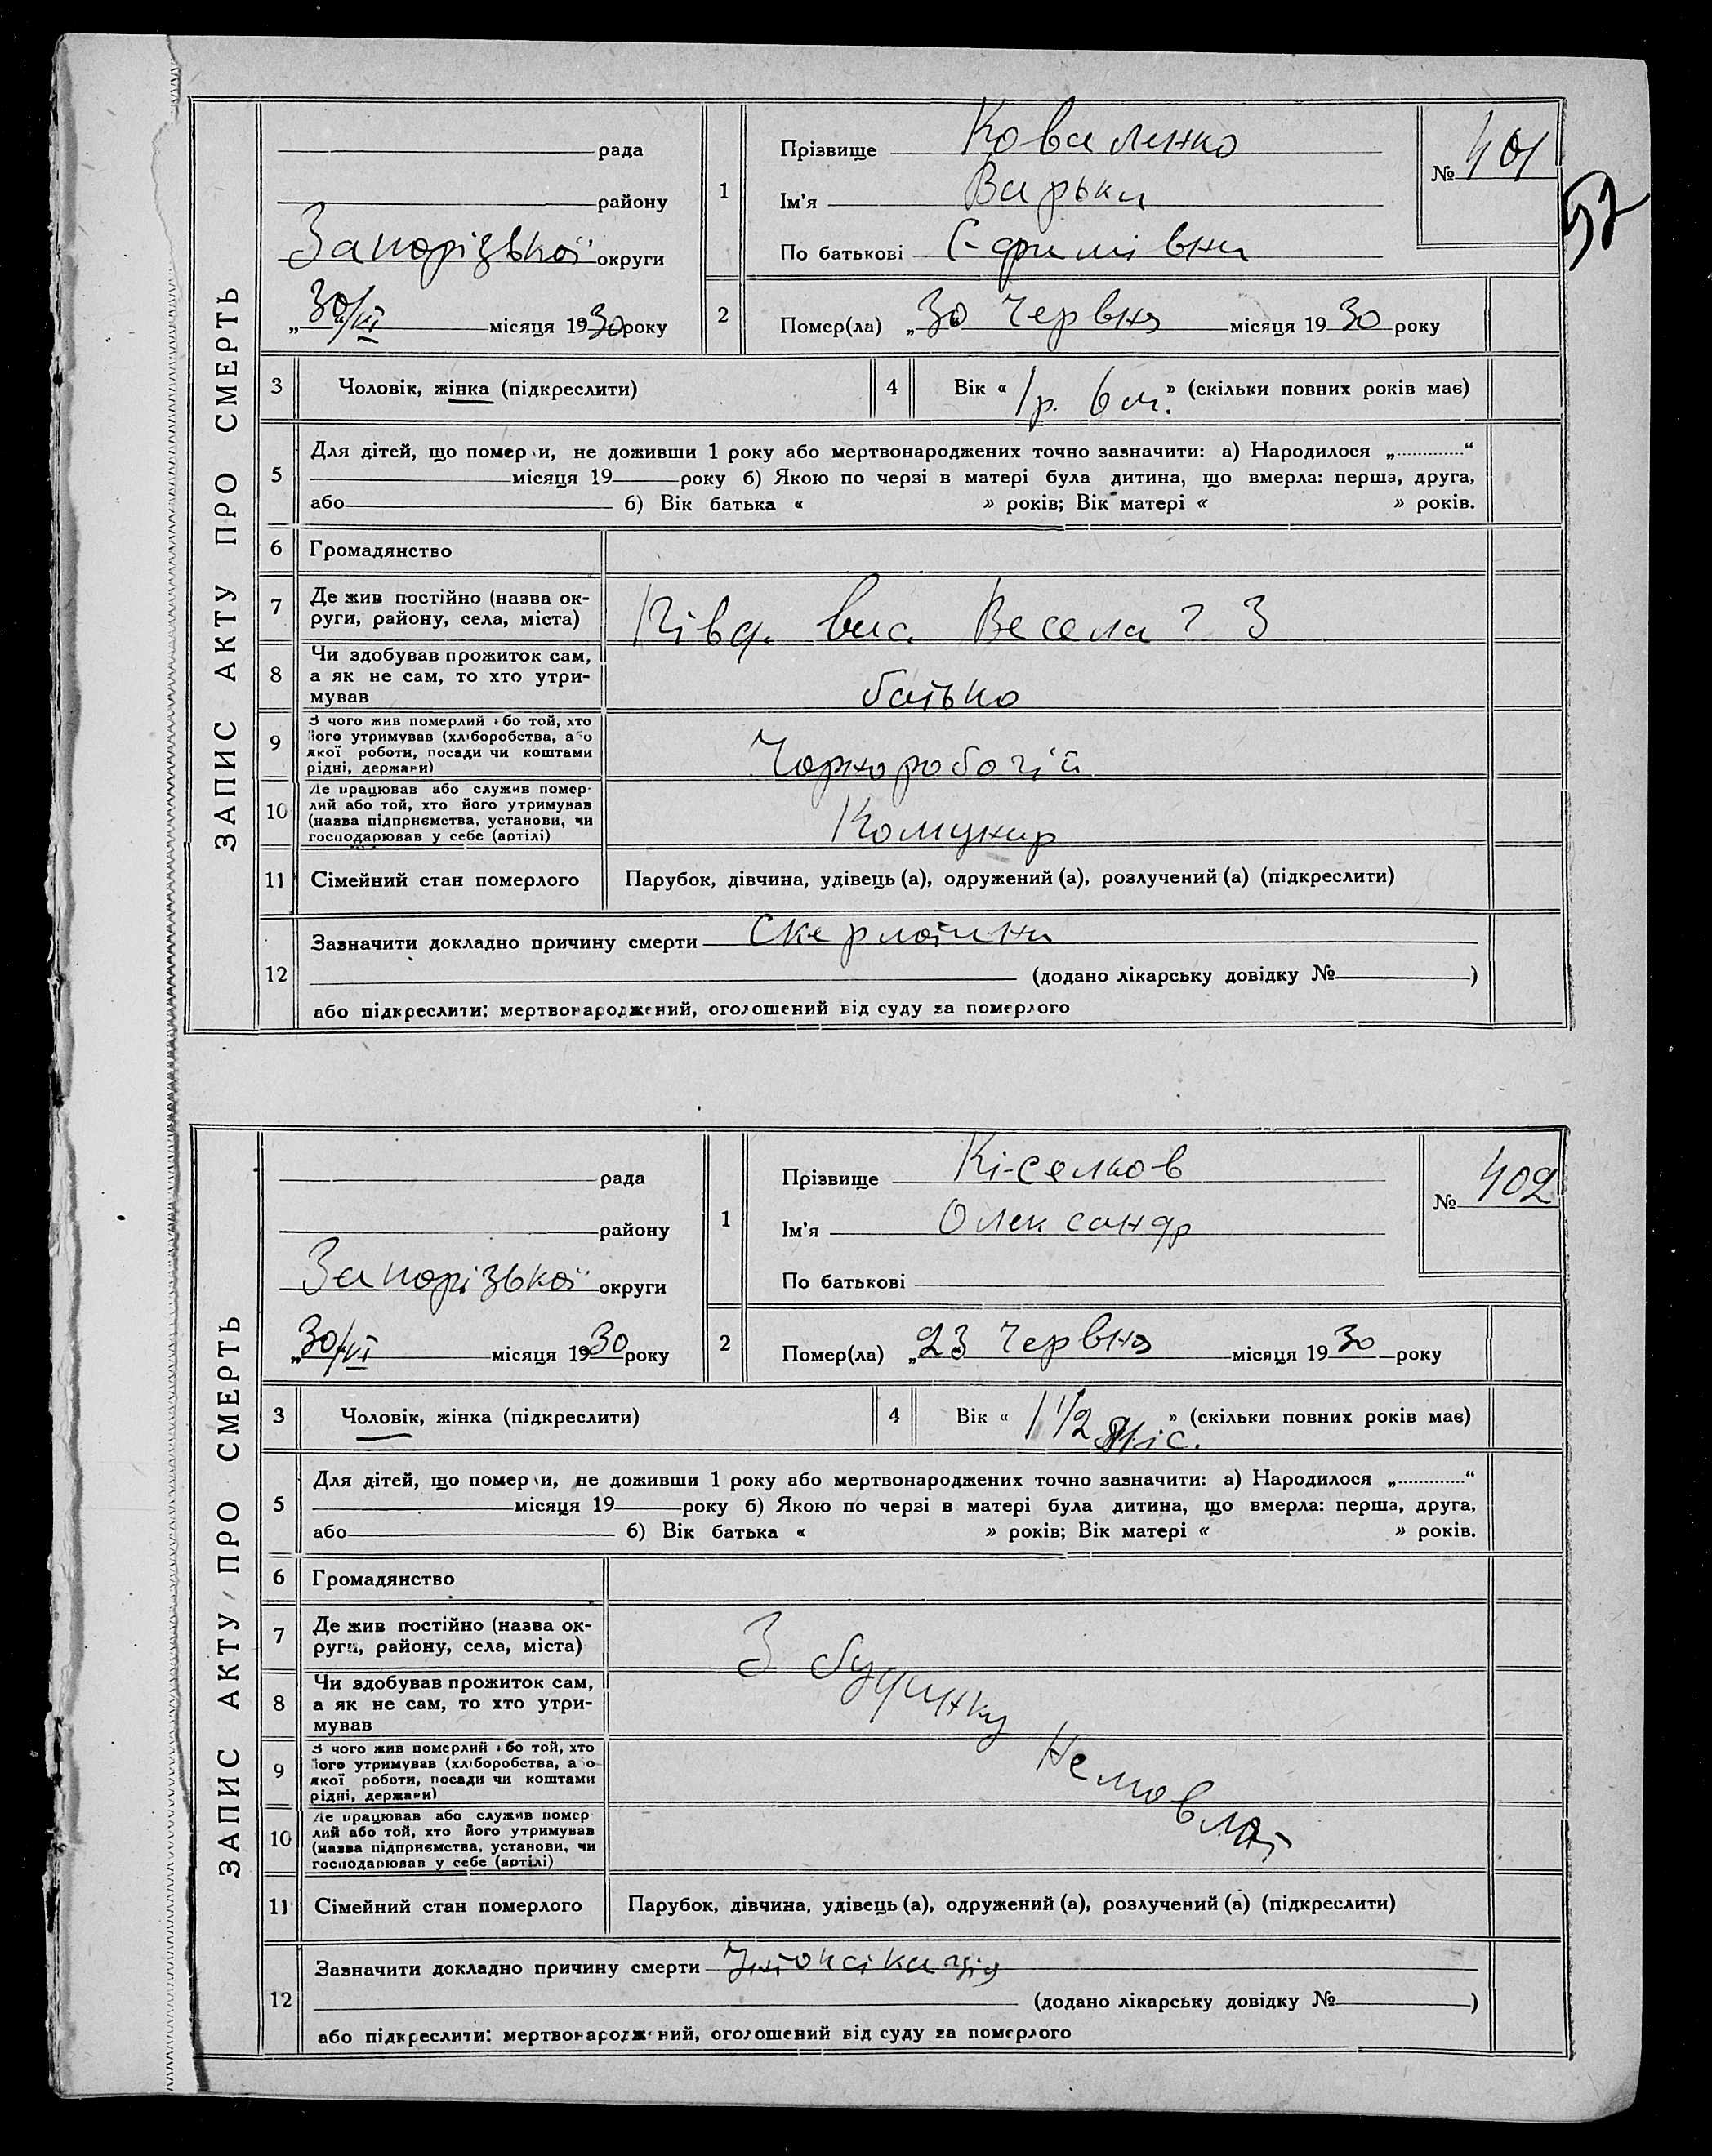 ЗАПИС АКТУ ПРО СМЕРТЬ
рада
району
Запорізької округи
„30/VI місяця 1930 року
1
Прізвище Коваленко
Ім'я Варька
По батькові Єфимівна
№ 401
57
2
Помер(ла) „30 Червня місяця 1930 року
3 Чоловік, жінка (підкреслити)
4 Вік « 1 р. 6 м. » (скільки повних років має)
5 Для дітей, що померли, не доживши 1 року або мертвонароджених точно зазначити: а) Народилося „............“
місяця 19 року б) Якою по черзі в матері була дитина, що вмерла: перша, друга,
або б) Вік батька « » років; Вік матері « » років.
6 Громадянство
7 Де жив постійно (назва ок-
руги, району, села, міста)
Півд. вис. Весела 23
8 Чи здобував прожиток сам,
а як не сам, то хто утри-
мував
батько
9 З чого жив померлий або той, хто
його утримував (хліборобства, або
якої роботи, посади чи коштами
рідні, держави)
Чорноробочій
10 Де працював або служив помер-
лий або той, хто його утримував
(назва підприємства, установи, чи
господарював у себе (артілі)
Комунар
11 Сімейний стан померлого Парубок, дівчина, удівець (а), одружений (а), розлучений (а) (підкреслити)
12 Зазначити докладно причину смерти Скерлатина
(додано лікарську довідку № )
або підкреслити: мертвонароджений, оголошений від суду за померлого
ЗАПИС АКТУ ПРО СМЕРТЬ
рада
району
Запорізької округи
„30/VI місяця 1930 року
1
Прізвище Кісельков
Ім'я Олександр
По батькові
№ 402
2
Помер(ла) „23 Червня місяця 1930 року
3 Чоловік, жінка (підкреслити)
4 Вік « 1 1/2 міс. » (скільки повних років має)
5 Для дітей, що померли, не доживши 1 року або мертвонароджених точно зазначити: а) Народилося „............“
місяця 19 року б) Якою по черзі в матері була дитина, що вмерла: перша, друга,
або б) Вік батька « » років; Вік матері « » років.
6 Громадянство
7 Де жив постійно (назва ок-
руги, району, села, міста)
З будинку Немовлят
8 Чи здобував прожиток сам,
а як не сам, то хто утри-
мував
9 З чого жив померлий або той, хто
його утримував (хліборобства, або
якої роботи, посади чи коштами
рідні, держави)
10 Де працював або служив помер-
лий або той, хто його утримував
(назва підприємства, установи, чи
господарював у себе (артілі)
11 Сімейний стан померлого Парубок, дівчина, удівець (а), одружений (а), розлучений (а) (підкреслити)
12 Зазначити докладно причину смерти Інтоксікація
(додано лікарську довідку № )
або підкреслити: мертвонароджений, оголошений від суду за померлого